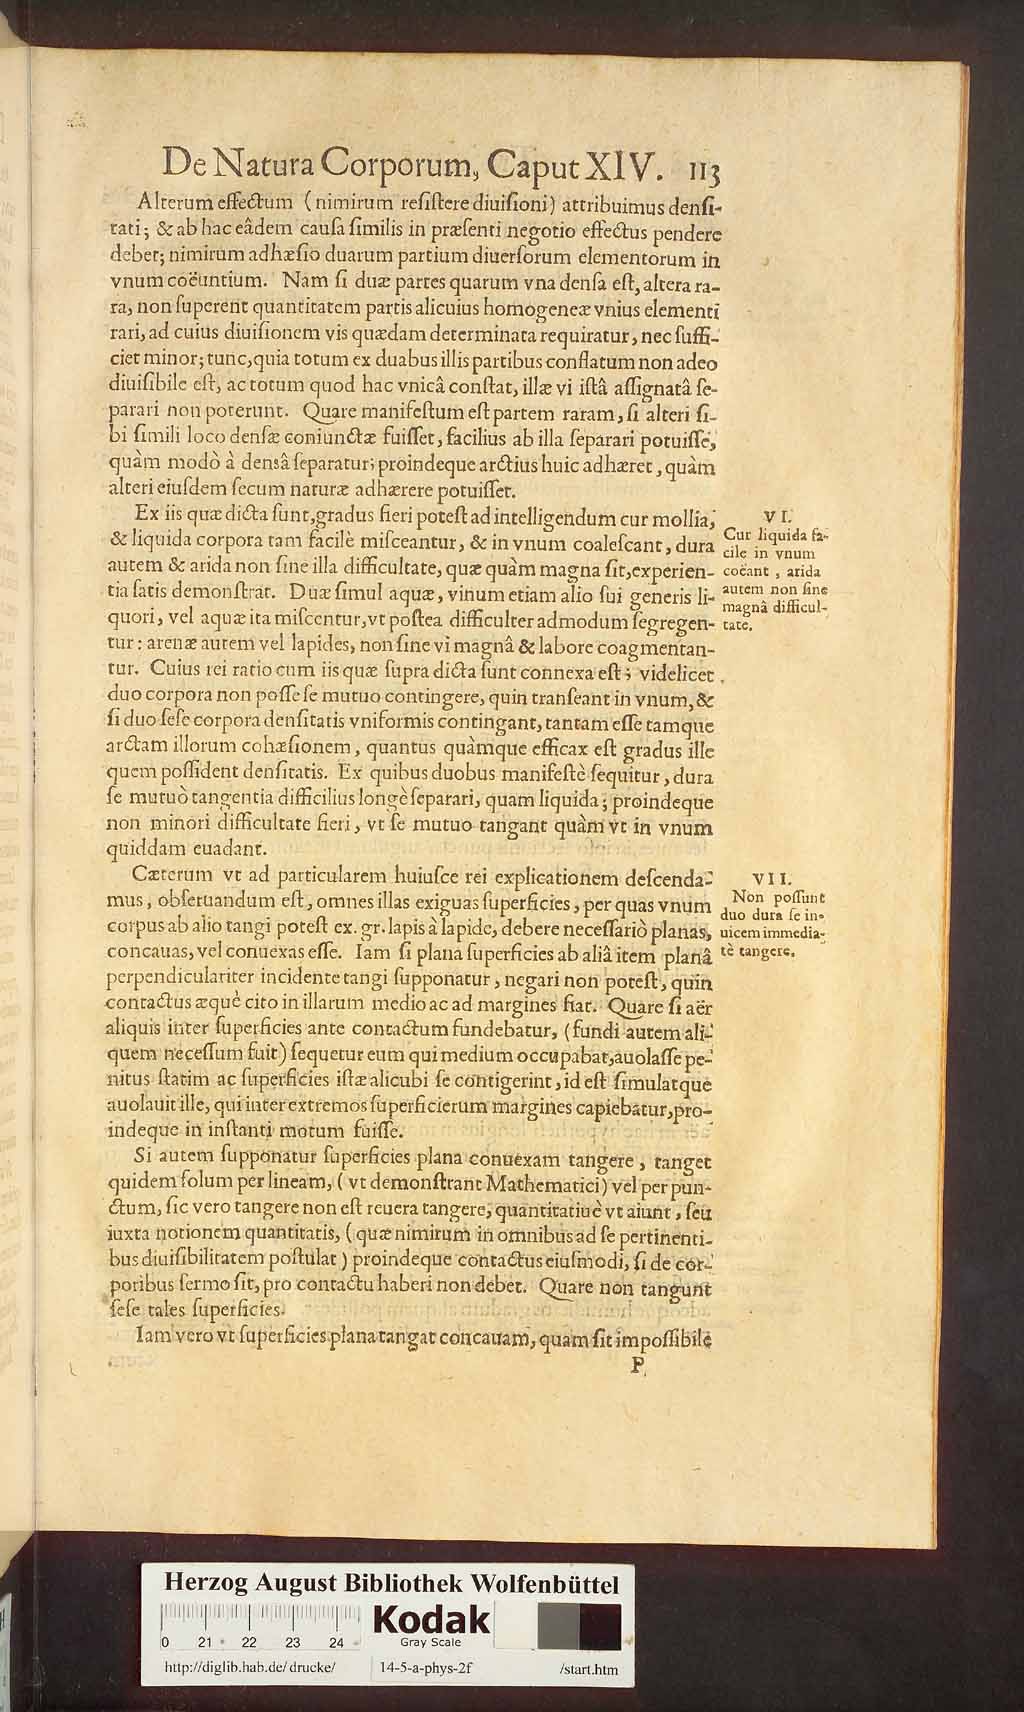 De Natura Corporum, Caput XIV. 113
Alterum effectum (nimirum reſiſtere diuiſioni) attribuimus denſi-
tati; & ab hac eâdem cauſa ſimilis in præſenti negotio effectus pendere
debet; nimirum adhæſio duarum partium diuerſorum elementorum in
vnum coëuntium. Nam ſi duæ partes quarum vna denſa eſt, altera ra-
ra, non ſuperent quantitatem partis alicuius homogeneæ vnius elementi
rari, ad cuius diuiſionem vis quædam determinata requiratur, nec ſuffi-
ciet minor; tunc, quia totum ex duabus illis partibus conflatum non adeo
diuiſibile eſt, ac totum quod hac vnicâ conſtat, illæ vi iſtâ aſſignatâ ſe-
parari non poterunt. Quare manifeſtum eſt partem raram, ſi alteri ſi-
bi ſimili loco denſæ coniunctæ fuiſſet, facilius ab illa ſeparari potuiſſe,
quàm modò à denſâ ſeparatur; proindeque arctius huic adhæret, quàm
alteri eiuſdem ſecum naturæ adhærere potuiſſet.
Ex iis quæ dicta ſunt, gradus fieri poteſt ad intelligendum cur mollia,
& liquida corpora tam facilè miſceantur, & in vnum coaleſcant, dura
autem & arida non ſine illa difficultate, quæ quàm magna ſit, experien-
tia ſatis demonſtrat. Duæ ſimul aquæ, vinum etiam alio ſui generis li-
quori, vel aquæ ita miſcentur, vt poſtea difficulter admodum ſegregen-
tur: arenæ autem vel lapides, non ſine vi magnâ & labore coagmentan-
tur. Cuius rei ratio cum iis quæ ſupra dicta ſunt connexa eſt; videlicet
duo corpora non poſſe ſe mutuo contingere, quin tranſeant in vnum, &
ſi duo ſeſe corpora denſitatis vniformis contingant, tantam eſſe tamque
arctam illorum cohæſionem, quantus quàmque efficax eſt gradus ille
quem poſſident denſitatis. Ex quibus duobus manifeſtè ſequitur, dura
ſe mutuò tangentia difficilius longè ſeparari, quam liquida; proindeque
non minori difficultate fieri, vt ſe mutuo tangant quàm vt in vnum
quiddam euadant.
VI.
Cur liquida fa-
cile in vnum
coëant, arida
autem non ſine
magnâ difficul-
tate.
Cæterum vt ad particularem huiuſce rei explicationem deſcenda-
mus, obſeruandum eſt, omnes illas exiguas ſuperficies, per quas vnum
corpus ab alio tangi poteſt ex. gr. lapis à lapide, debere neceſſariò planas,
concauas, vel conuexas eſſe. Iam ſi plana ſuperficies ab aliâ item planâ
perpendiculariter incidente tangi ſupponatur, negari non poteſt, quin
contactus æquè cito in illarum medio ac ad margines fiat. Quare ſi aër
aliquis inter ſuperficies ante contactum fundebatur, (fundi autem ali-
quem neceſſum fuit) ſequetur eum qui medium occupabat, auolaſſe pe-
nitus ſtatim ac ſuperficies iſtæ alicubi ſe contigerint, id eſt ſimulatque
auolauit ille, qui inter extremos ſuperficierum margines capiebatur, pro-
indeque in inſtanti motum fuiſſe.
VII.
Non poſſunt
duo dura ſe in-
uicem immedia-
tè tangere.
Si autem ſupponatur ſuperficies plana conuexam tangere, tanget
quidem ſolum per lineam, (vt demonſtrant Mathematici) vel per pun-
ctum, ſic vero tangere non eſt reuera tangere, quantitatiuè vt aiunt, ſeu
iuxta notionem quantitatis, (quæ nimirum in omnibus ad ſe pertinenti-
bus diuiſibilitatem poſtulat) proindeque contactus eiuſmodi, ſi de cor-
poribus ſermo ſit, pro contactu haberi non debet. Quare non tangunt
ſeſe tales ſuperficies.
Iam vero vt ſuperficies plana tangat concauam, quam ſit impoſſibile
P
Herzog August Bibliothek Wolfenbüttel
0 21 22 23 24
Kodak
Gray Scale
http://diglib.hab.de/drucke/ 14-5-a-phys-2f /start.htm